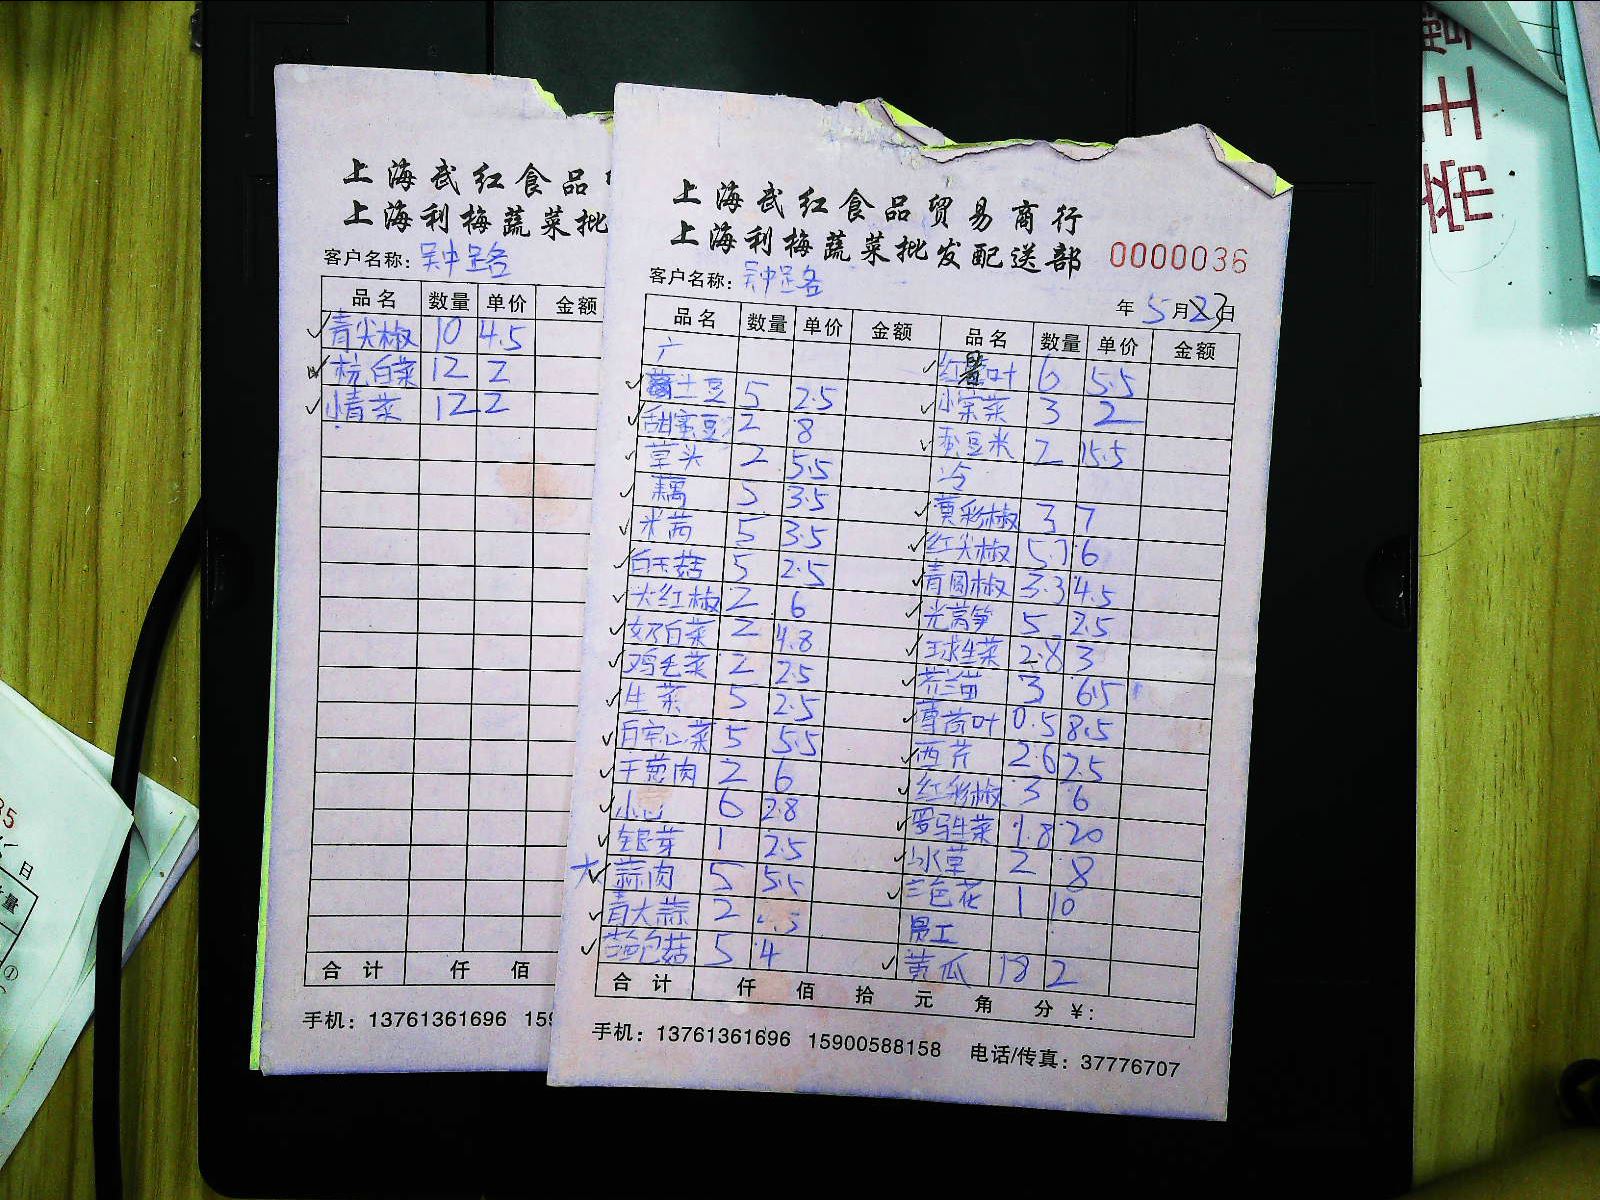 上海武红食品
上海利梅蔬菜批
客户名称:
品名 数量 单价 金额
青尖椒 10 4.5
杭白菜 12 2
小青菜 12 2
合计 仟 佰
手机: 13761361696 159
上海武红食品贸易商行
上海利梅蔬菜批发配送部 0000036
客户名称:
年 5月23日
品名 数量 单价 金额 品名 数量 单价 金额
广 红薯叶 6 5.5
土豆 5 2.5 小宋菜 3 2
甜蜜豆 2 8 蚕豆米 2 15.5
草头 2 5.5 冷
藕 5 3.5 黄彩椒 3 7
米茜 5 3.5 红尖椒 5.7 6
白玉菇 5 2.5 青圆椒 3.3 4.5
大红椒 2 6 光莴笋 5 2.5
奶白菜 2 4.8 球生菜 2.8 3
鸡毛菜 2 2.5 芥兰苗 3 6.5
生菜 5 2.5 薄荷叶 0.5 8.5
空心菜 5 5.5 西芹 2.6
干葱肉 2 6 红彩椒 3 6
小心 6 2.8 罗马生菜 1.8 20
银芽 1 2.5 冰草 2 8
大蒜肉 5 5.5 三色花 1 10
青大蒜 2 员工
杏鲍菇 5 4 黄瓜 18 2
合计 仟 佰 拾 元 角 分 ¥:
手机: 13761361696 15900588158 电话/传真: 37776707
帝王
35
日
量